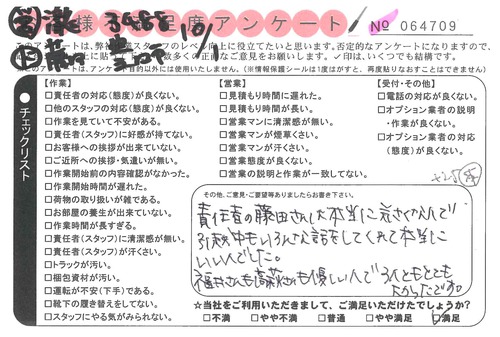 様 満足度アンケート
No 064709
10/1
このアンケートは、弊社
レベル向上に役立てたいと思います。否定的なアンケートになりますので、
数多くの正直なご意見をお願いします。✓印は、いくつでも結構です。
的以外には使用いたしません。(※情報保護シールは1度はがすと、再度貼りなおすことはできません)
●チェックリスト
【作業】
□責任者の対応(態度)が良くない。
□他のスタッフの対応(態度)が良くない。
□作業を見ていて不安がある。
□責任者(スタッフ)に好感が持てない。
□お客様への挨拶が出来ていない。
□ご近所への挨拶・気遣いが無い。
□作業開始前の内容確認がなかった。
□作業開始時間が遅れた。
□荷物の取り扱いが雑である。
□お部屋の養生が出来ていない。
□作業時間が長すぎる。
□責任者(スタッフ)に清潔感が無い。
□責任者(スタッフ)が汗くさい。
□トラックが汚い。
□梱包資材が汚い。
□運転が不安(下手)である。
□靴下の履き替えをしてない。
□スタッフにやる気がみられない。
【営業】
□見積もり時間に遅れた。
□見積もり時間が長い。
□営業マンに清潔感が無い。
□営業マンが煙草くさい。
□営業マンが汗くさい。
□営業態度が良くない。
□営業の説明と作業が一致してない。
【受付・その他】
□電話の対応が良くない。
□オプション業者の説明
・作業が良くない。
□オプション業者の対応
(態度)が良くない。
その他、ご意見・ご要望等ありましたらお書き下さい。
責任者の藤田さんは本当に気さくな人で
引越中もいろんな話をしてくれて本当に
いい人でした。
さんも優しい人で3人ともとても
よかったです。
☆当社をご利用いただきまして、ご満足いただけたでしょうか?
□不満 □やや不満 □普通 □やや満足 ☑満足